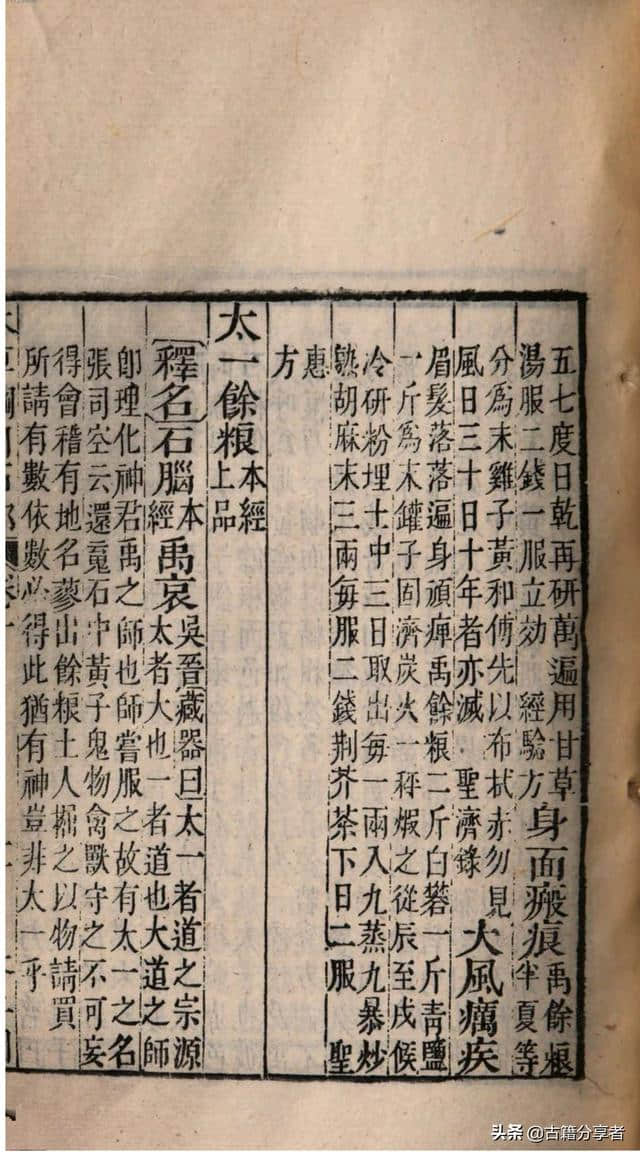 五七度日乾再研萬遍用甘草
湯服二錢一服立効 經驗方
身面瘢痕
禹餘粮
半夏等
分爲末雞子黃和傅先以布拭赤勿見
風日三十日十年者亦滅 聖濟錄
大風癘疾
眉髮落落遍身頑痺禹餘粮二斤白礬一斤青鹽
一斤爲末罐子固濟炭火一秤煆之從辰至戌候
冷研粉埋土中三日取出每一兩入九蒸九暴炒
熟胡麻末三兩每服二錢荆芥茶下日二服 聖
惠
方
太一餘粮 本經上品
〔釋名〕石腦 本經 禹哀 吳晉 藏器曰太一者道之宗源
太者大也一者道也大道之師
卽理化神君禹之師也師嘗服之故有太一之名
張司空云還䰟石中黃子鬼物禽獸守之不可妄
得會稽有地名蓼出餘粮土人掘之以物請買
所請有數依數必得此猶有神豈非太一乎
头条 @古籍分享者